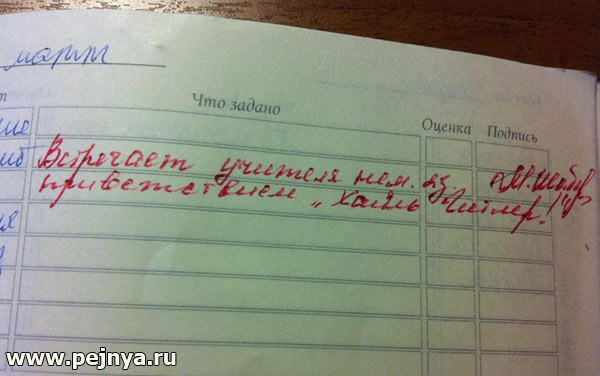 март
Что задано Оценка Подпись
Встречает учителя нем. яз.
приветствием „Хайль Гитлер!"
www.pejnya.ru